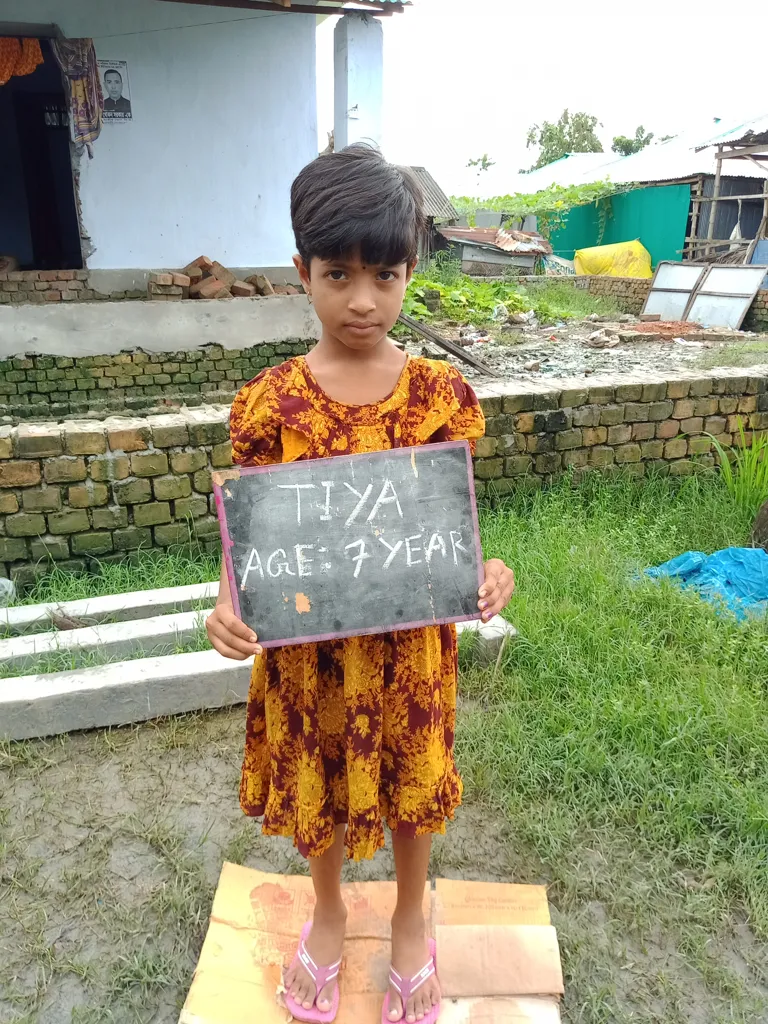 TIYA
AGE: 7 YEAR